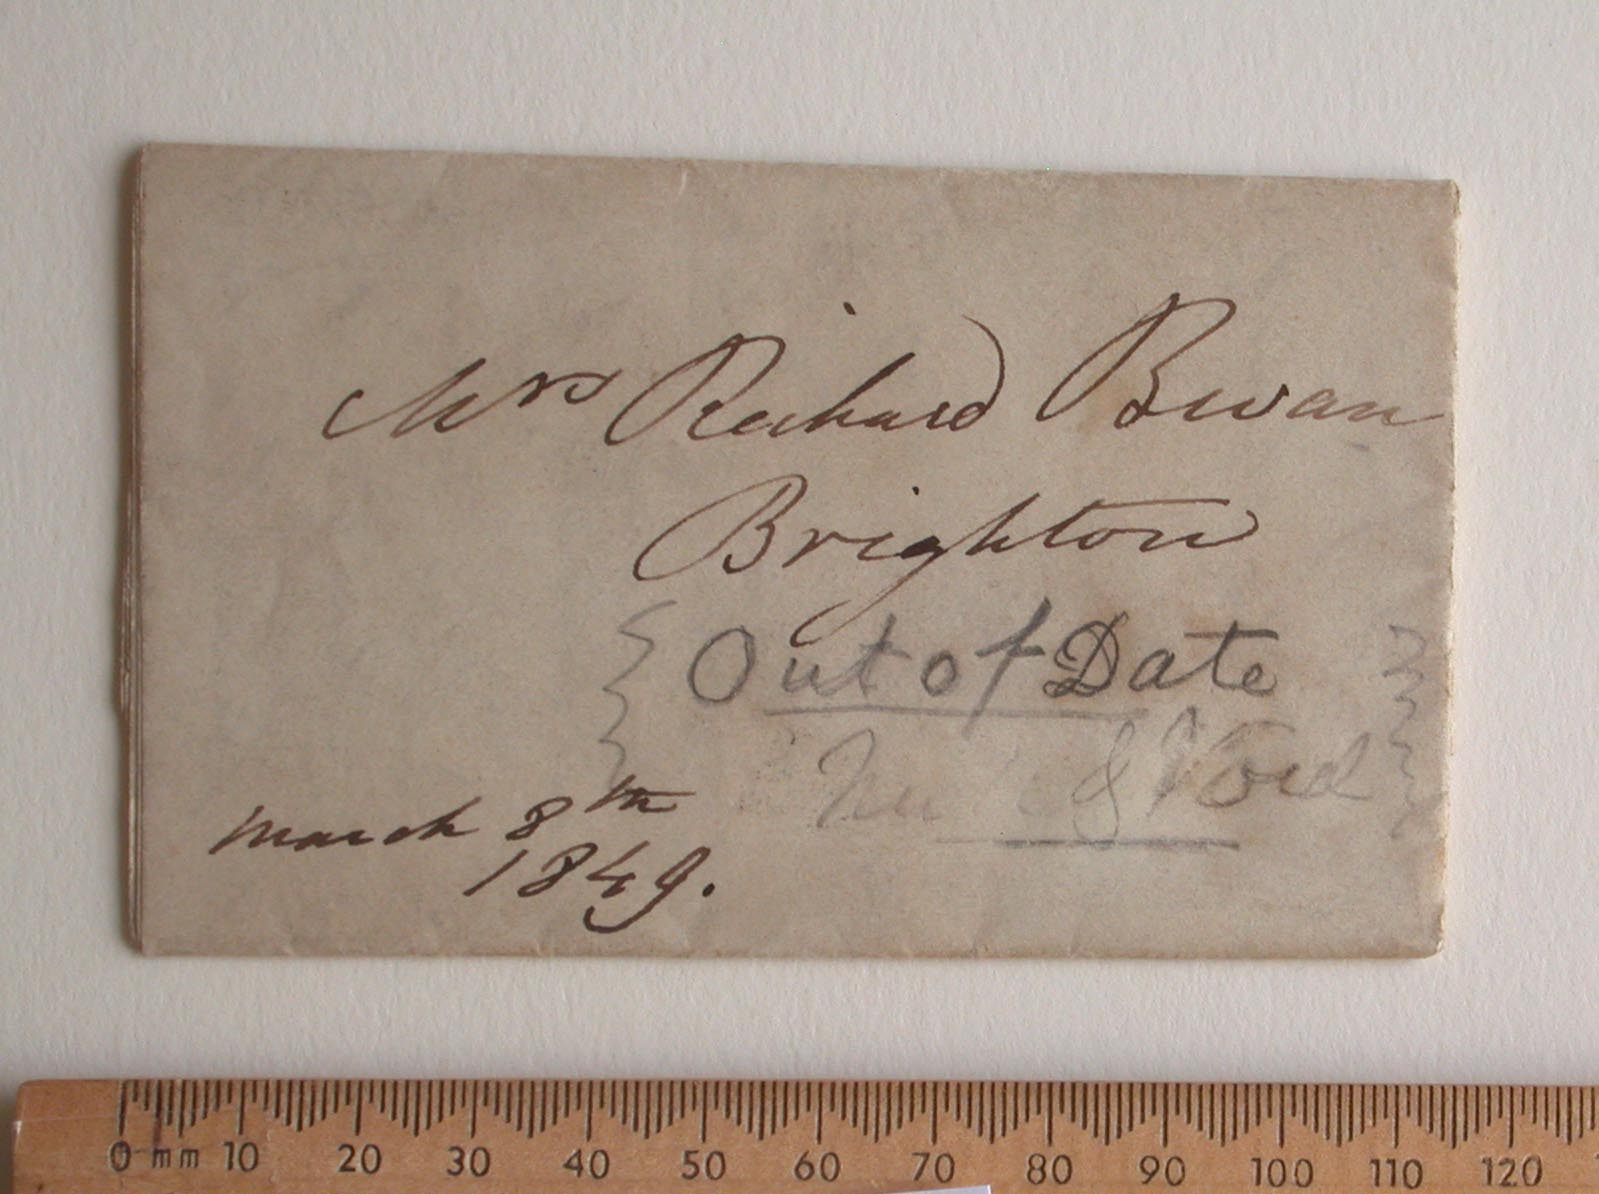 Mrs Richard Bevan
Brighton
Out of Date
& Void
March 8th
1849.
0 mm 10 20 30 40 50 60 70 80 90 100 110 120